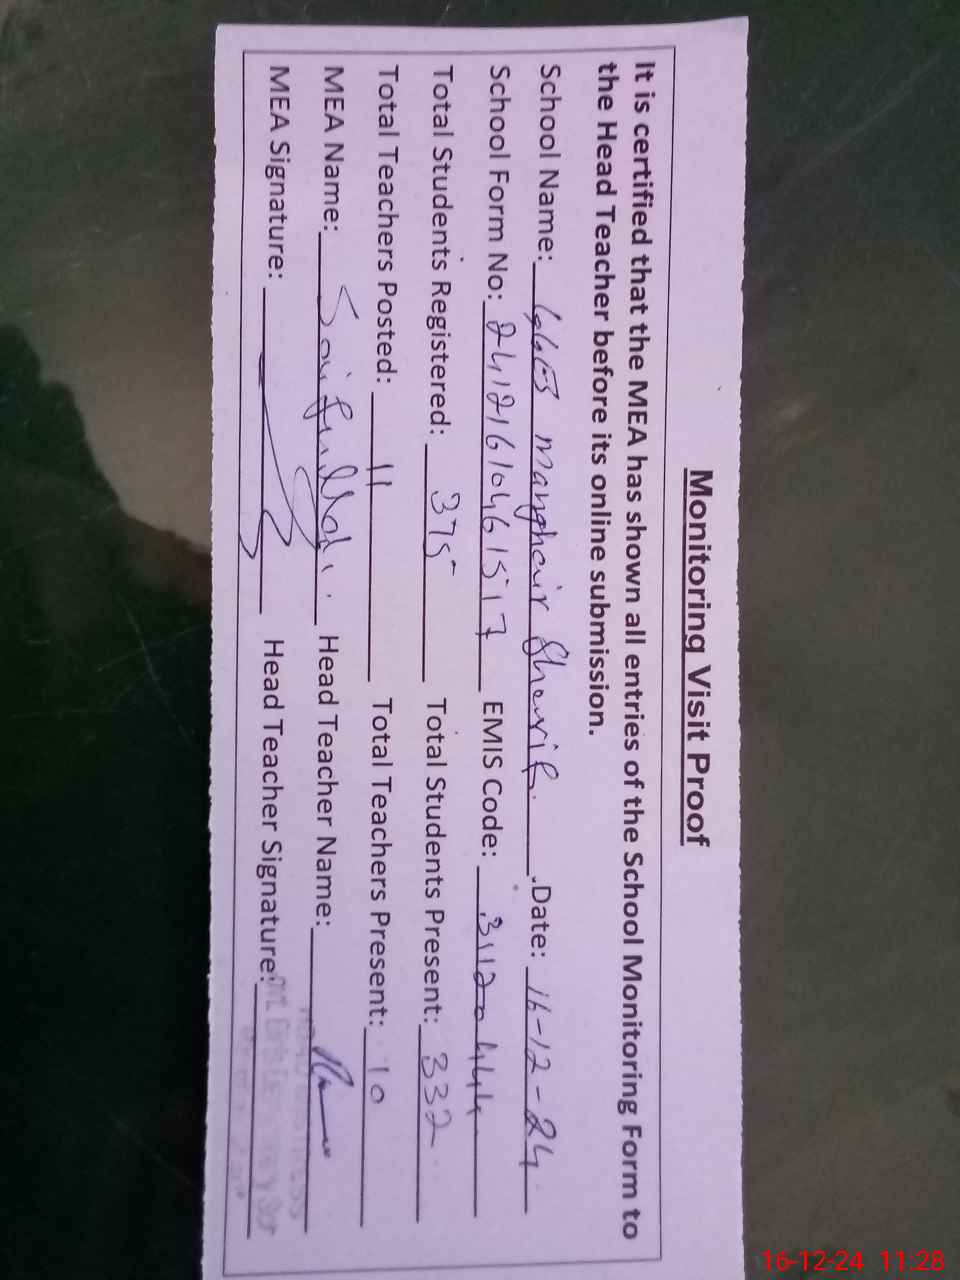 Monitoring Visit Proof
It is certified that the MEA has shown all entries of the School Monitoring Form to
the Head Teacher before its online submission.
School Name: GGES Manghair Sharif. Date: 16-12-24
School Form No: 24121610461517 EMIS Code: 31120444
Total Students Registered: 375 Total Students Present: 332
Total Teachers Posted: 11 Total Teachers Present: 10
MEA Name: Head Teacher Name:
MEA Signature: Head Teacher Signature:
16-12-24 11:28